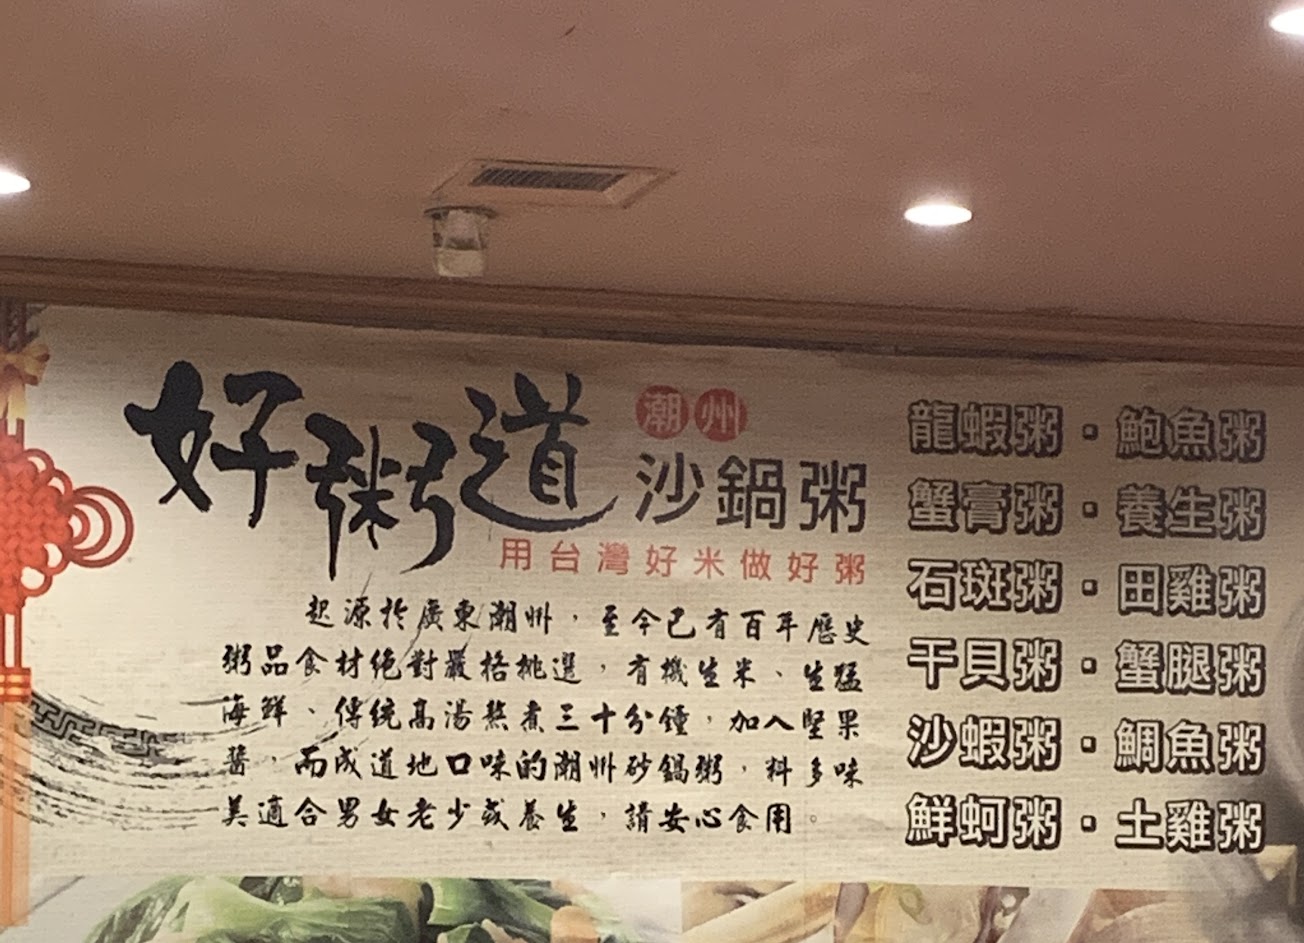 好粥道
潮州
沙鍋粥
用台灣好米做好粥
起源於廣東潮州，至今已有百年歷史
粥品食材絕對嚴格挑選，有機生米、生猛
海鮮、傳統高湯熬煮三十分鐘，加入堅果
醬，而成道地口味的潮州砂鍋粥，料多味
美適合男女老少或養生，請安心食用。
龍蝦粥・鮑魚粥
蟹膏粥・養生粥
石斑粥・田雞粥
干貝粥・蟹腿粥
沙蝦粥・鯛魚粥
鮮蚵粥・土雞粥